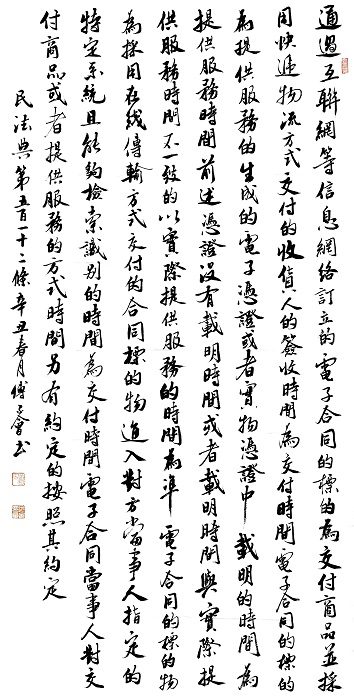 通過互聯網等信息網絡訂立的電子合同的標的為交付商品並採
用快遞物流方式交付的收貨人的簽收時間為交付時間電子合同的標的
為提供服務的生成的電子憑證或者實物憑證中載明的時間為
提供服務時間前述憑證沒有載明時間或者載明時間與實際提
供服務時間不一致的以實際提供服務的時間為準電子合同的標的物
為採用在线傳輸方式交付的合同標的物進入對方當事人指定的
特定系統且能夠檢索識別的時間為交付時間電子合同當事人對交
付商品或者提供服務的方式時間另有約定的按照其約定
民法典第五百一十二條辛丑春月傅書